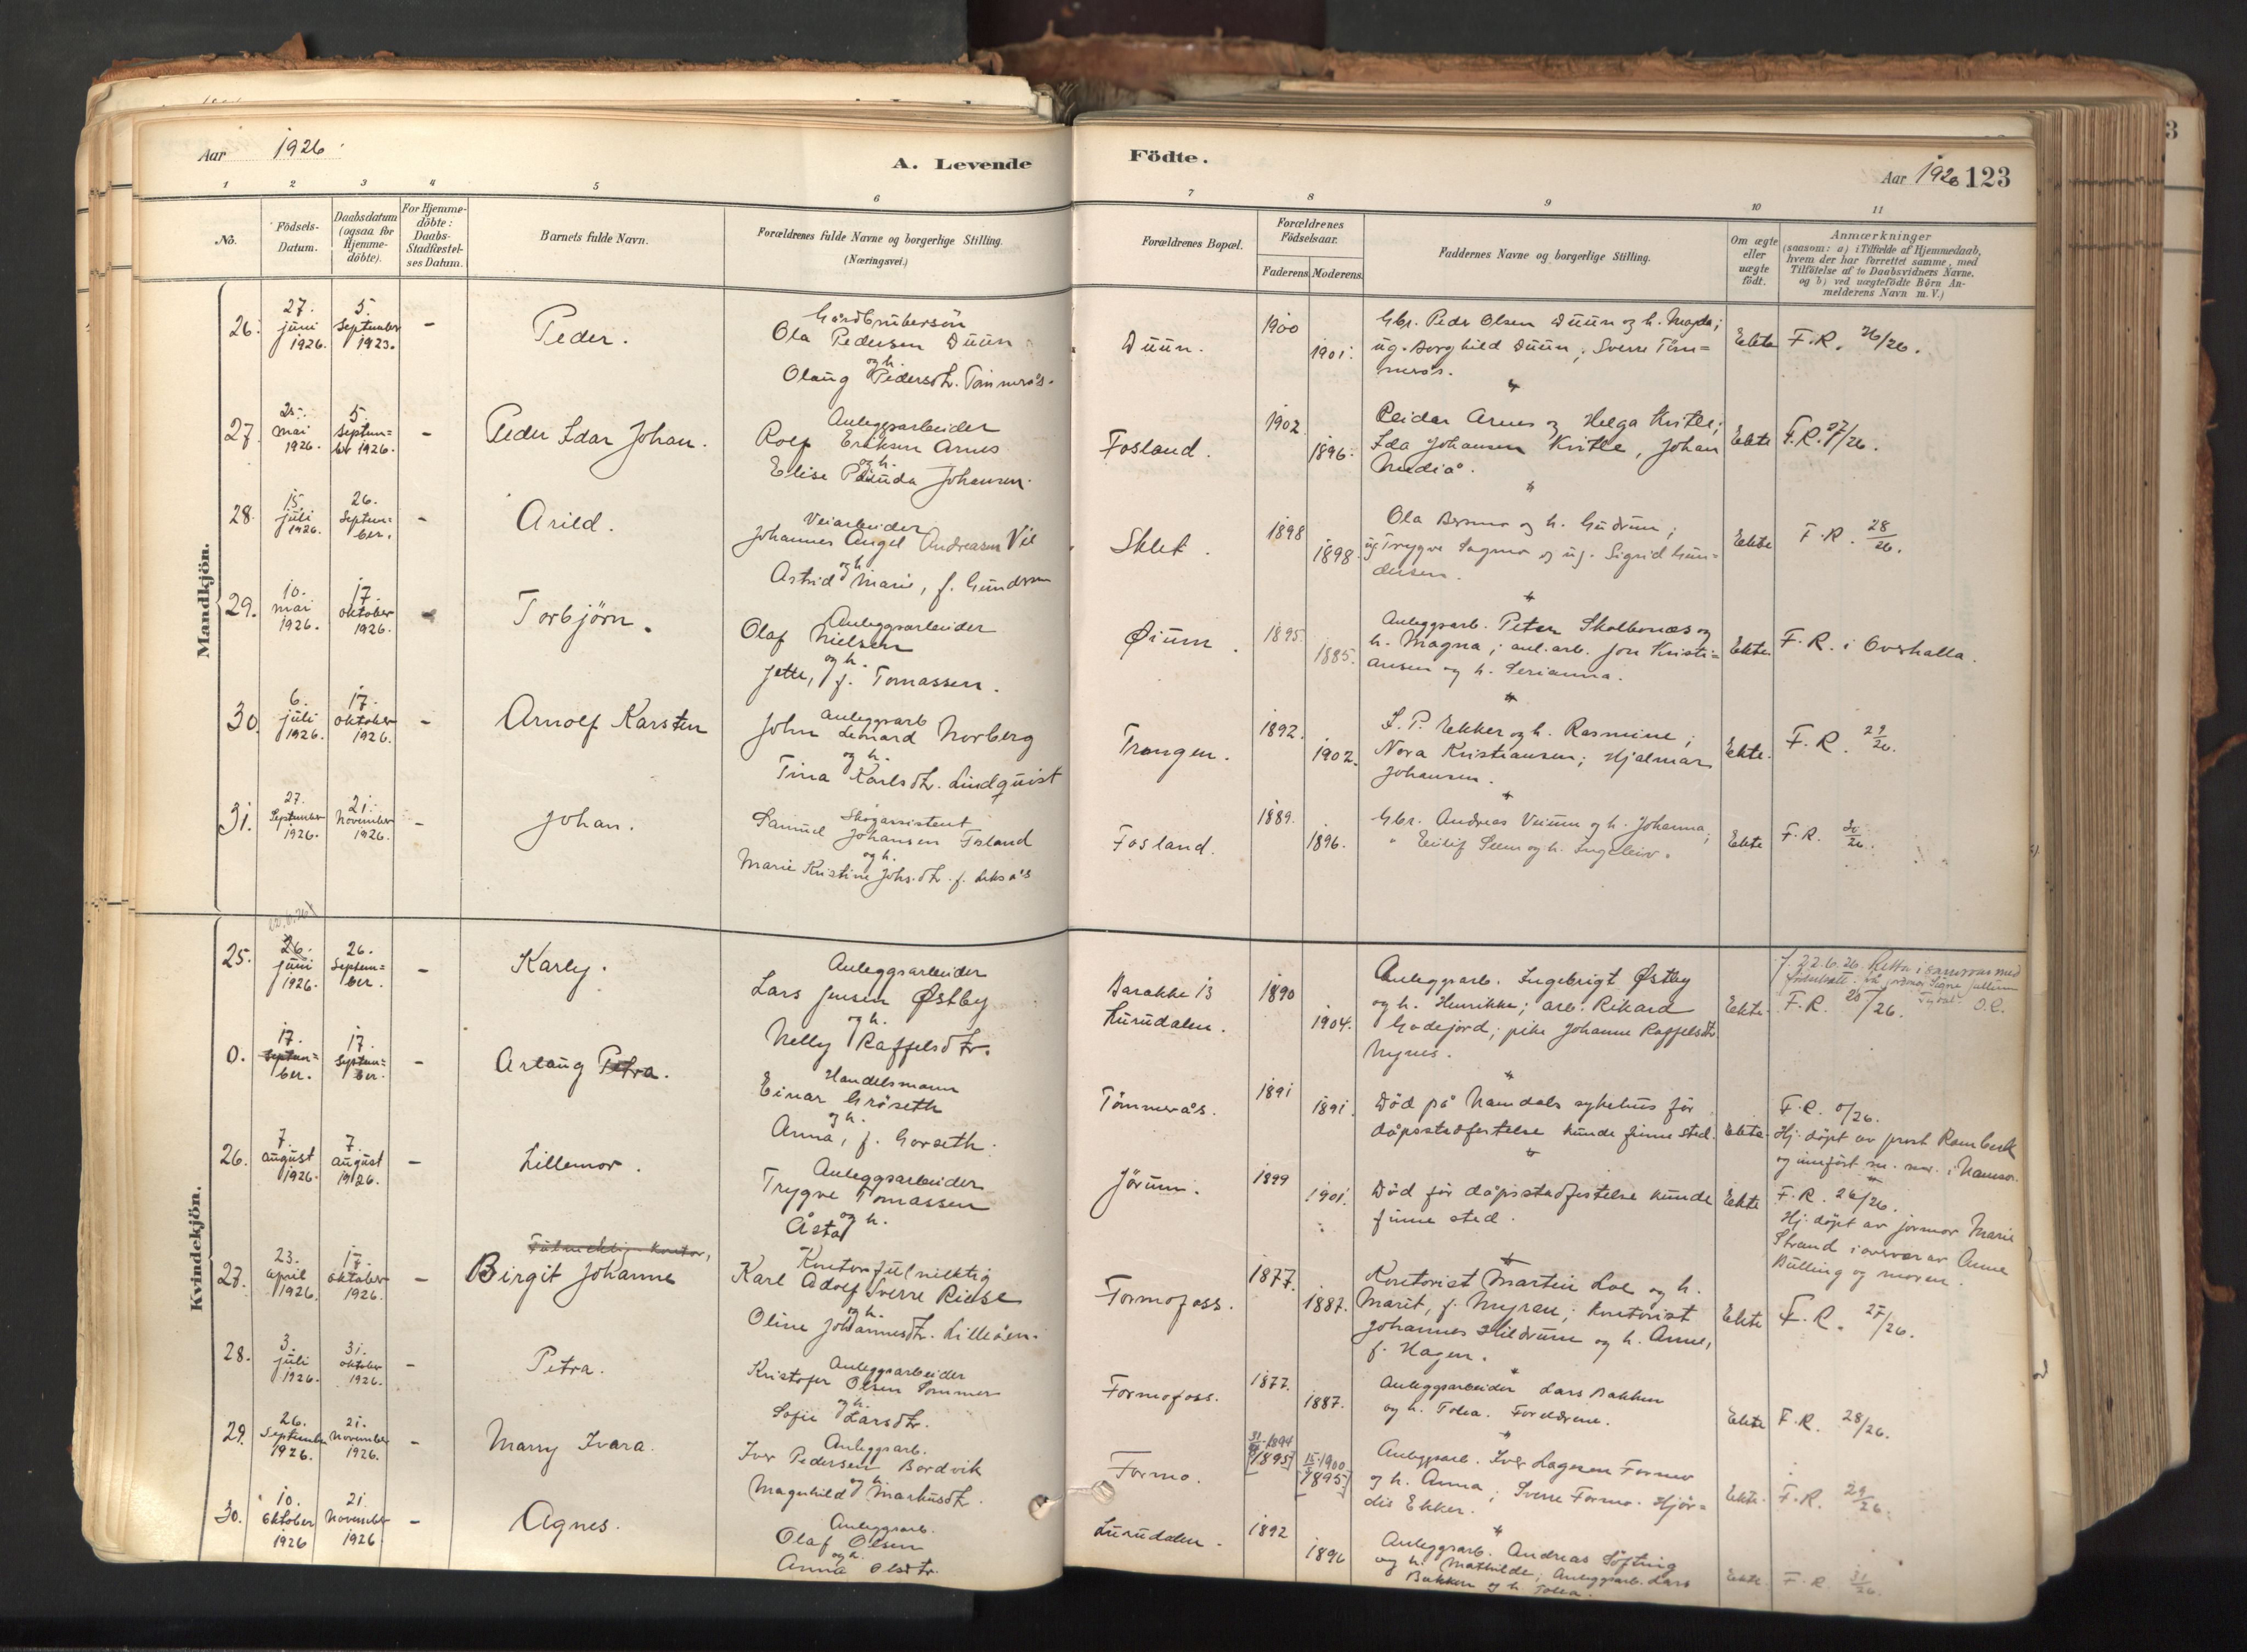 Aar 1926.
A. Levende
Födte.
Aar 1926 123
1 2 3 4 5 6 7 8 9 10 11
No.
Födsels-
Datum.
Daabsdatum
(ogsaa for
Hjemme-
döbte).
For Hjemme-
döbte:
Daabs-
Stadfæstel-
ses Datum.
Barnets fulde Navn.
Forældrenes fulde Navne og borgerlige Stilling.
(Næringsvei.)
Forældrenes Bopæl.
Forældrenes
Födselsaar.
Faderens. Moderens.
Faddernes Navne og borgerlige Stilling.
Om ægte
eller
uægte
födt.
Anmærkninger
(saasom: a) i Tilfælde af Hjemmedaab,
hvem der har forrettet samme, med
Tilföielse af to Daabsvidners Navne.
og b) ved uægtefödte Börn An-
melderens Navn m. V.)
Mandkjön.
26.
27.
juni
1926.
5.
September
1923.
-
Peder.
Ola Pedersen Duun
og h.
Olaug Pedersdtr. Tømmerås.
Duun.
1900
1901.
Gbr. Peder Olsen Duun og h. Magda;
ug. Borghild Duun, Sverre Töm=
merås.
Ekte
F.R. 26/26.
27.
25.
mai
1926.
5.
Septem=
ber 1926.
-
Peder Idar Johan.
Anleggsarbeider
Rolf Eriksen Arnes
og h.
Elise Johansen.
Fosland.
1902
1896.
Reidar Arnes og Helga Kvitle;
Ida Johansen Kvitle, Johan
Mediå.
Ekte
F.R. 27/26.
28.
15.
juli
1926.
26.
Septem=
ber.
-
Arild.
Veiarbeider
Johannes Angel Andreasen Vie
og h.
Astrid Marie, f. Gundersen
Sklet.
1898
1898.
Ola Bersmo og h. Gudrun;
ug. Trygve Sagmo og ug. Sigrid Gun=
dersen.
Ekte
F.R. 28/26.
29.
10.
mai
1926.
17.
oktober
1926.
-
Torbjörn.
Anleggsarbeider
Olaf Nielsen
og h.
Jette, f. Tomassen.
Øium.
1895.
1885.
Anleggsarb. Peter Skolbones og
h. Magna; anl.arb. Jon Kristi=
ansen og h. Serianna.
Ekte.
F.R. i Overhalla.
30.
6.
juli
1926.
17.
oktober
1926.
-
Arnolf Karsten
Anleggsarb
John Leonard Norberg
og h.
Tina Karlsdtr. Lindquist
Trangen.
1892.
1902.
I. P. Ekker og h. Rasmine;
Nora Kristiansen; Hjalmar
Johansen.
Ekte.
F.R. 29/26.
31.
27.
September
1926.
21.
November
1926.
-
Johan.
Skogassistent
Samuel Johansen Fosland
og h.
Marie Kristine Johs.dtr. f. Leksås
Fosland.
1889.
1896.
Gbr. Andreas Veium og h. Johanna;
" Eilif Seem og h. Ingeleiv.
Ekte
F.R. 30/26.
Kvindekjön.
25.
26.
juni
1926.
26.
Septem=
ber.
-
Karly.
Anleggsarbeider
Lars Jensen Østby
og h.
Nelly Raffelsdtr.
Barakke 13
Lurudalen.
1890
1904.
Anleggsarb. Ingebrigt Østby
og h. Henrikke; arb. Rikard
Godejord; pike Johanne Raffelsdtr.
Nynes.
Ekte.
f. 22.6.26. Retta i samsvar med
O.R.
F.R. 25/26.
0.
17.
Septem=
ber.
17.
Septem=
ber.
-
Arlaug Petra.
Handelsmann
Einar Gröseth
og h.
Anna, f. Gorseth.
Tömmerås.
1891
1891.
Död på Namdals sykehus før
dåpsstadfestelse kunde finne sted.
Ekte.
F.R. 0/26.
Hj. döpt av prest Rambeck
og innfört m. nr. i Namsos.
26.
7.
august
1926.
7.
august
1926.
-
Lillemor.
Anleggsarbeider
Trygve Tomassen
og h.
Åsta
Jörum.
1899
1901.
Död för dåpsstadfestelse kunde
finne sted.
Ekte
F.R. 26/26.
Hj. döpt av jormor Marie
Strand i overvær av Anne
Bulling og moren.
27.
23.
april
1926.
17.
oktober
1926.
-
Birgit Johanne
Kontorfulmektig
Karl Adolf Sverre Riese
og h.
Oline Johannesdtr. Lilleöen.
Formofoss.
1877.
1887.
Kontorist Martin Loe og h.
Marit, f. Myran; kontorist
Johannes Hildrum og h. Anne,
f. Hagen.
Ekte
F.R. 27/26.
28.
3.
juli
1926.
31.
oktober
1926.
-
Petra.
Anleggsarbeider
Kristofer Olsen Sommer
og h.
Sofie Larsdtr.
Formofoss.
1877.
1887.
Anleggsarbeider Lars Bakken
og h. Tolea. Foreldrene.
Ekte
F.R. 28/26.
29.
26.
September
1926.
21.
November
1926.
-
Marry Ivara.
Anleggsarb.
Iver Pedersen Bordvik
og h.
Magnhild Markusdtr.
Formo.
1894
[1895]
1900
[1895]
Anleggsarb. Iver Lagesen Formo
og h. Anna; Sverre Formo. Hjör=
dis Ekker.
Ekte.
F.R. 29/26.
30.
10.
oktober
1926
21.
November
1926.
-
Agnes.
Anleggsarb.
Olaf Olsen
og h.
Anna Olsdtr.
Lurudalen.
1892
1896
Anleggsarb. Andreas Söfting
og h. Mathilde; Anleggsarb. Lars
Bakken og h. Tolea.
Ekte.
F.R. 31/26.